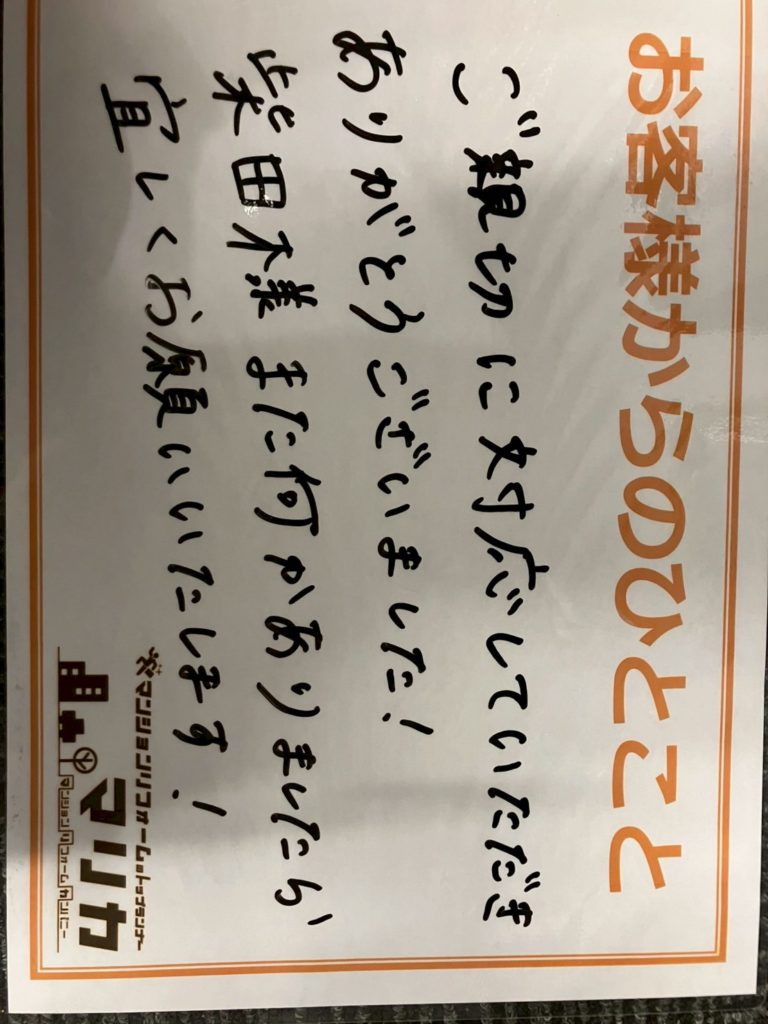 お客様からのひとこと
ご親切に対応していただき
ありがとうございました!
柴田様 また何かありましたら
宜しくお願いいたします!
マンションリフォームのトップランナー
マリカ
マンションリフォームカンパニー